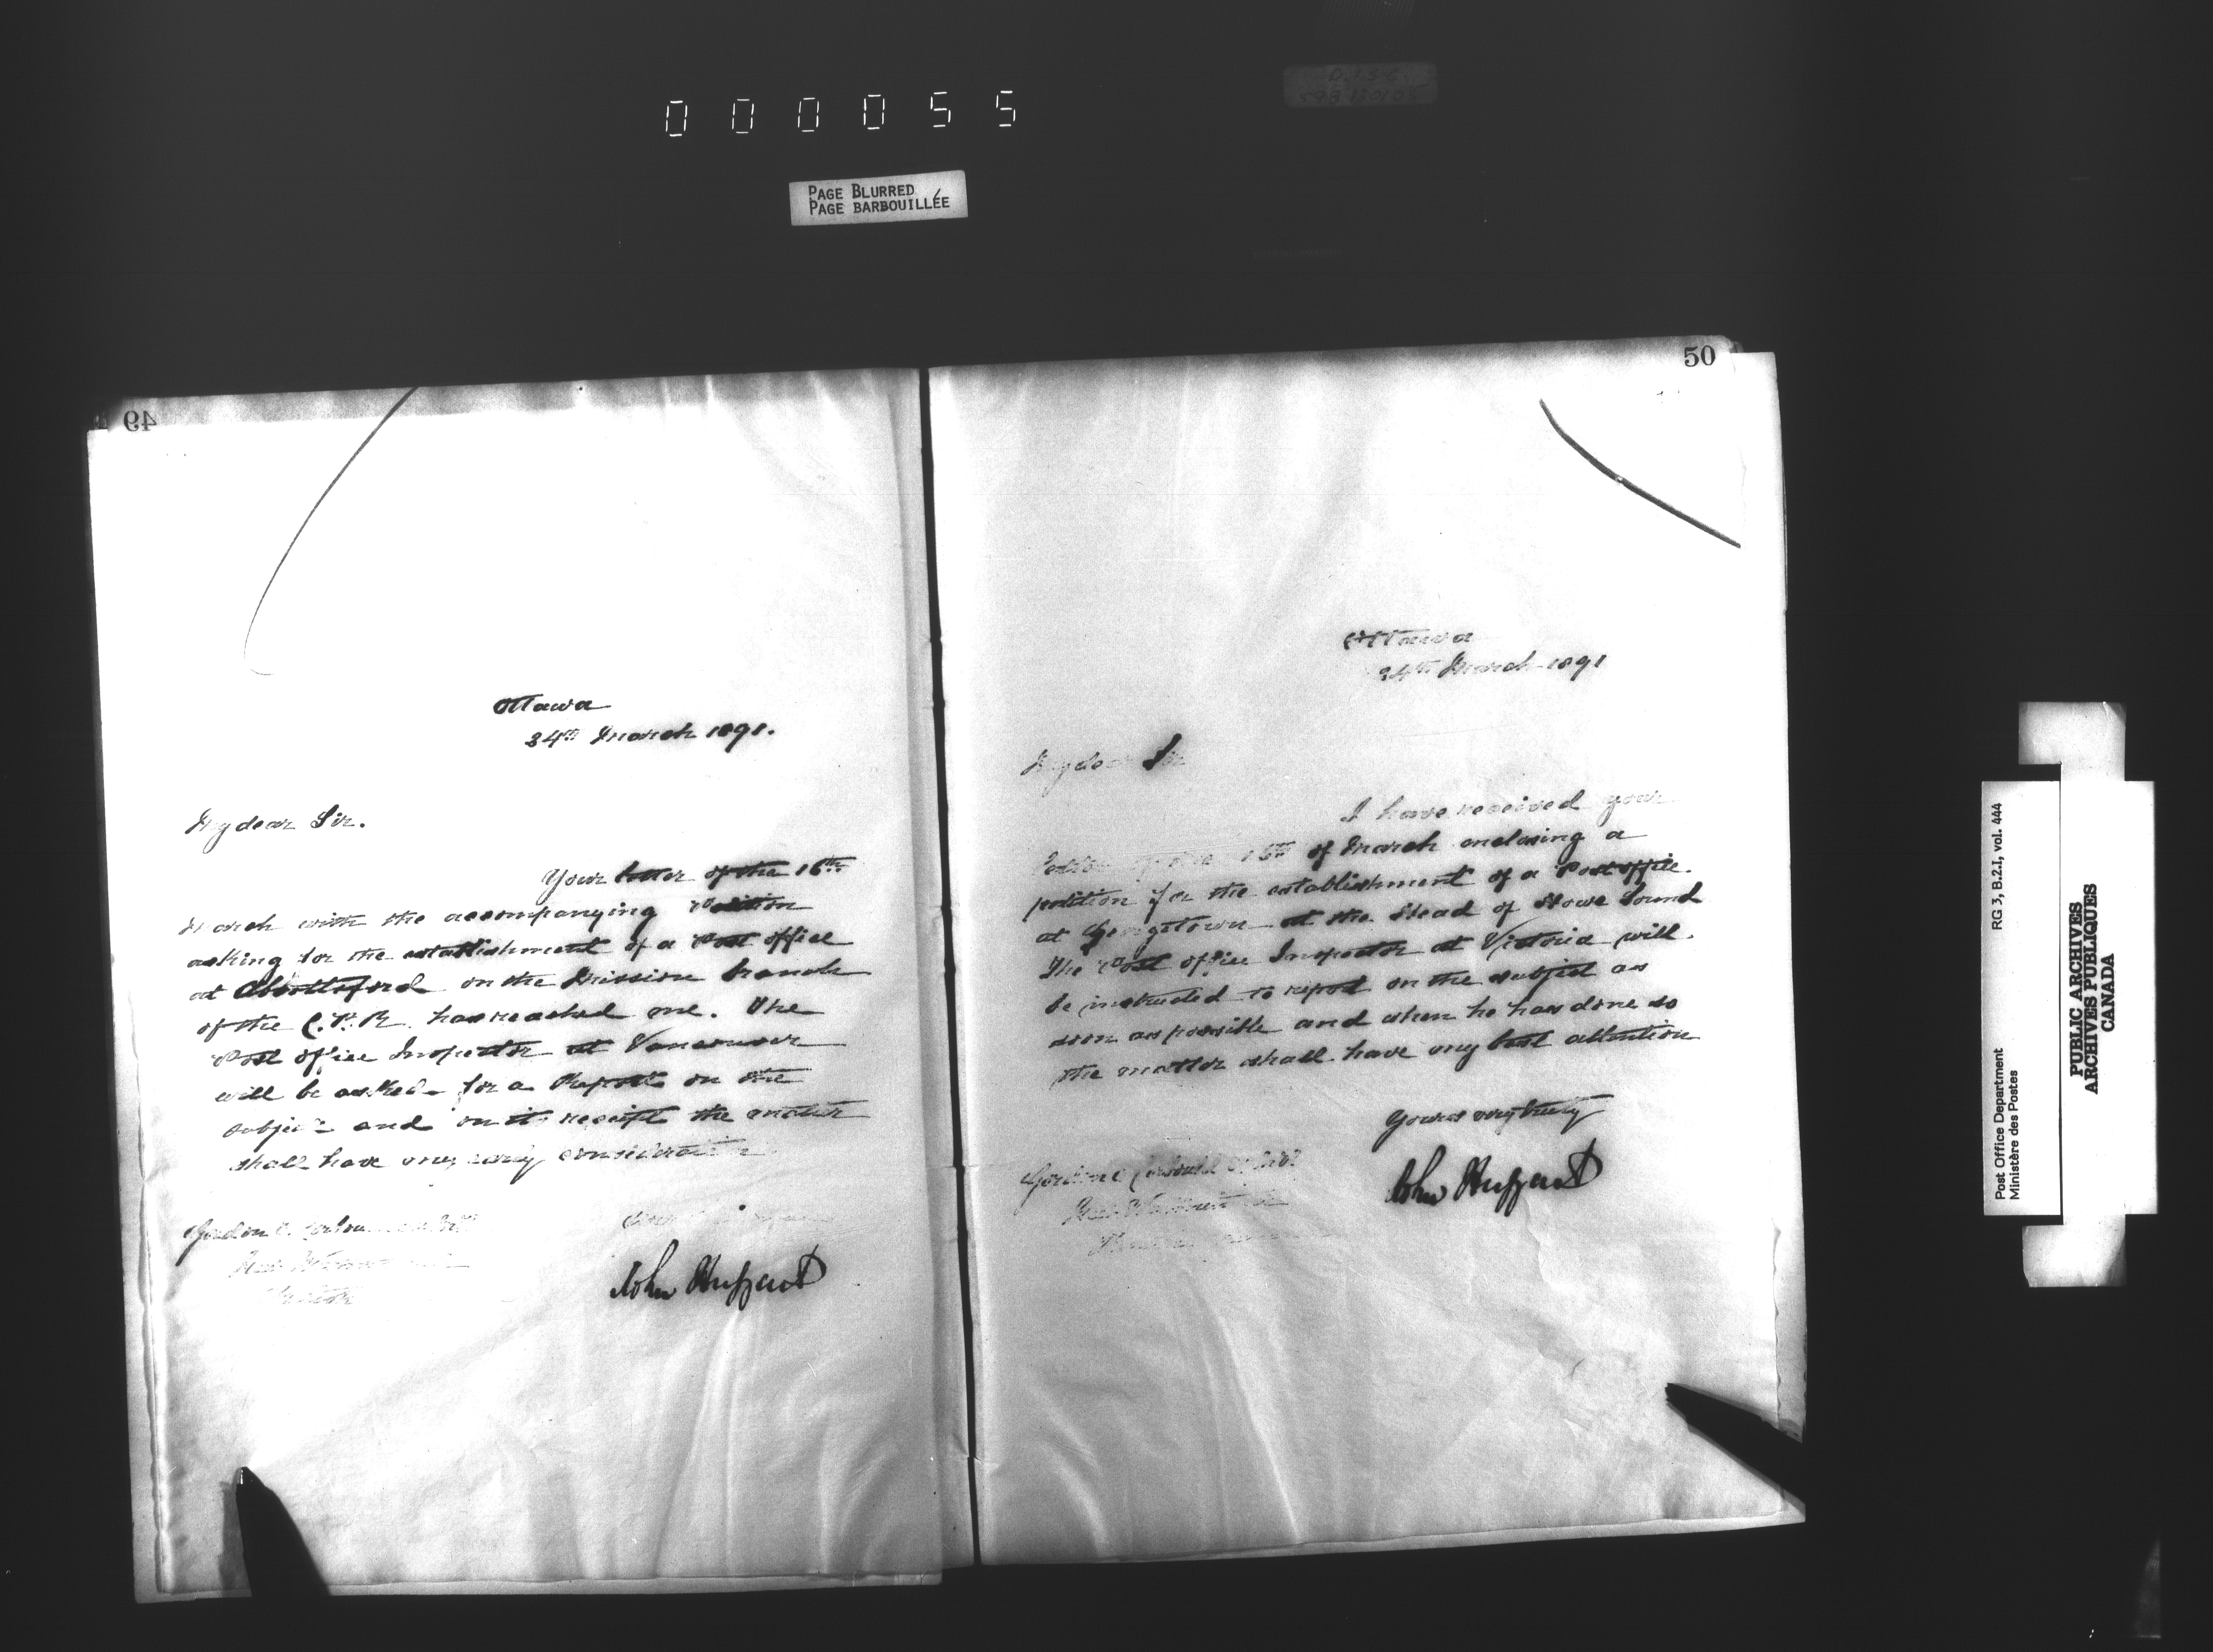 000055
PAGE BLURRED
PAGE BARBOUILLÉE
49
Ottawa
24th March 1891.
My dear Sir.
Your letter of the 16th
March with the accompanying Petition
asking for the establishment of a Post office
at Abbottsford on the Mission branch
of the C.P.R. has reached me. The
Post office Inspector at Vancouver
will be asked for a Report on the
subject and on its receipt the matter
shall have my early consideration
Gordon E. Corbould
John Haggart
50
Ottawa
24th March 1891
My dear Sir
I have received your
letter of the 16th of March enclosing a
petition for the establishment of a Post office.
at Georgetown at the Head of Howe Sound
The Post office Inspector at Victoria will
be instructed to report on the subject as
soon as possible and when he has done so
the matter shall have my best attention
Yours very truly
Gordon E Corbould Esq M.P.
New Westminster
John Haggart
Post Office Department
Ministère des Postes
RG 3, B.2.1., vol. 444
PUBLIC ARCHIVES
ARCHIVES PUBLIQUES
CANADA